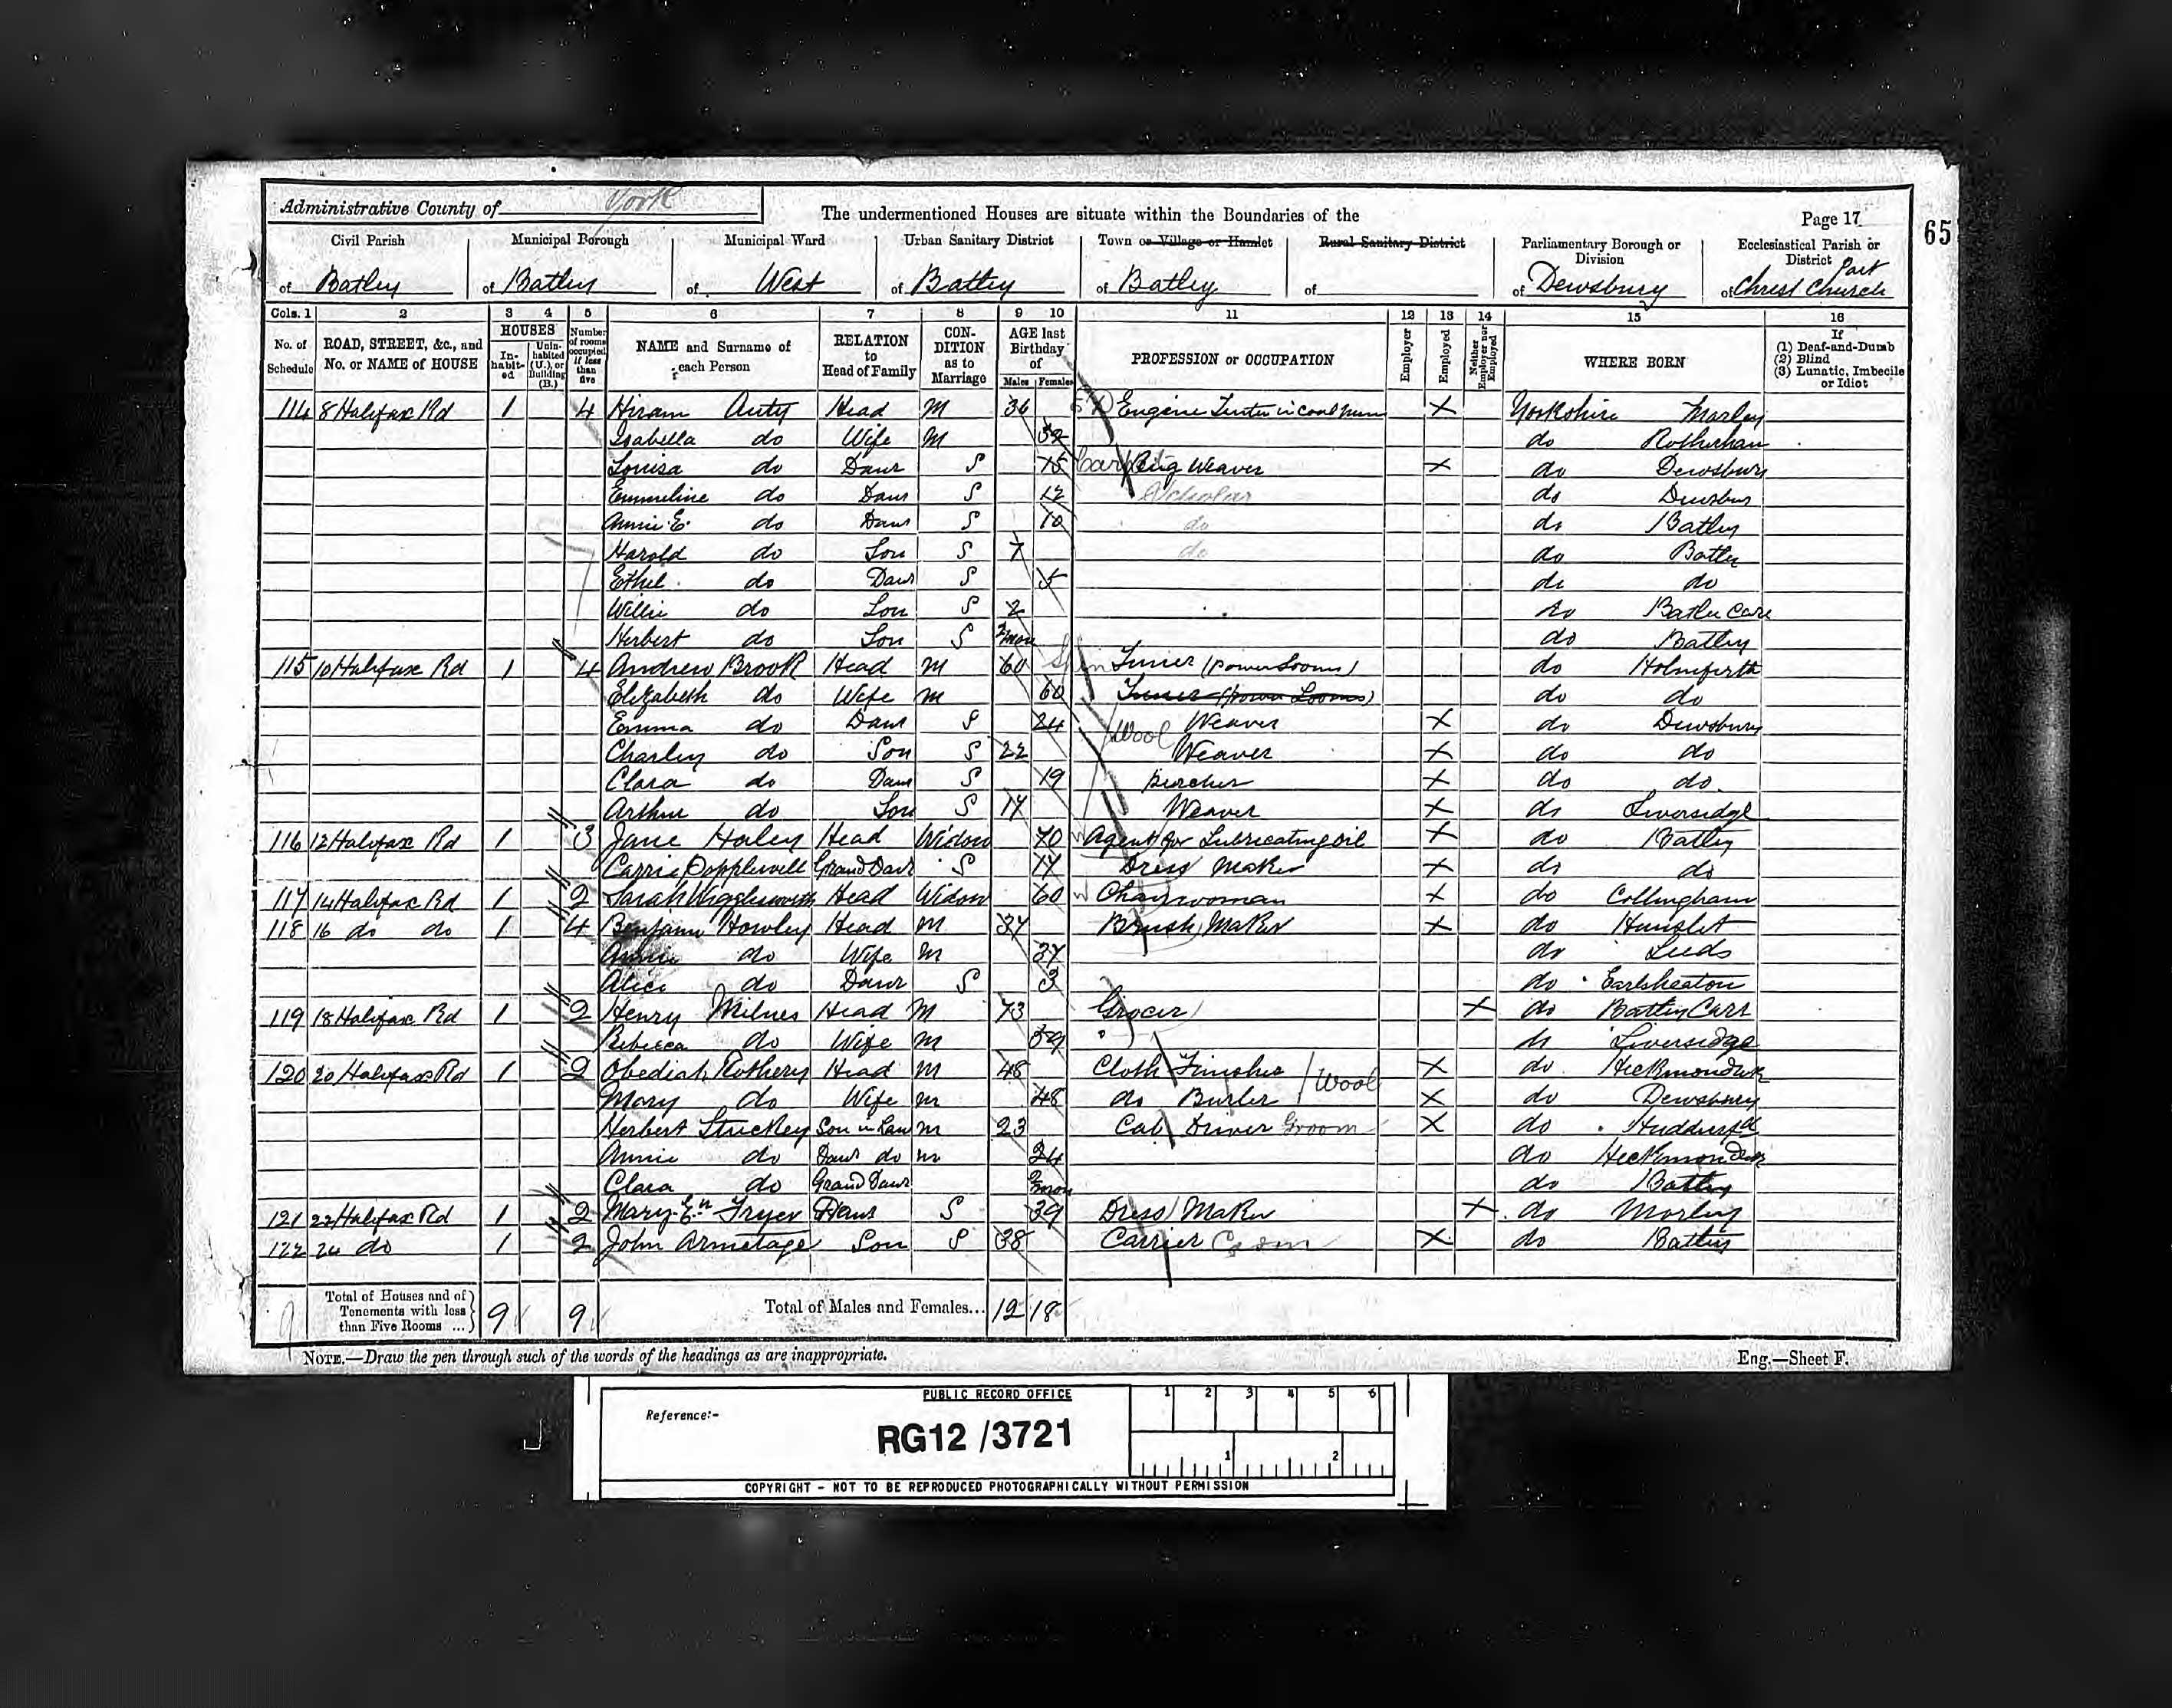 Administrative County of York
The undermentioned Houses are situate within the Boundaries of the
Page 17
65
Civil Parish Municipal Borough Municipal Ward Urban Sanitary District Town or Village or Hamlet Rural Sanitary District Parliamentary Borough or Division Ecclesiastical Parish or District
of Batley of Batley of West of Batley of Batley of of Dewsbury of Christ Church Part
Cols. 1 2 3 4 5 6 7 8 9 10 11 12 13 14 15 16
No. of Schedule ROAD, STREET, &c., and No. or NAME of HOUSE HOUSES Inhabited Uninhabited (U.), or Building (B.) Number of rooms occupied if less than five NAME and Surname of each Person RELATION to Head of Family CONDITION as to Marriage AGE last Birthday of Males Females PROFESSION or OCCUPATION Employer Employed Neither Employer nor Employed WHERE BORN If (1) Deaf-and-Dumb (2) Blind (3) Lunatic, Imbecile or Idiot
114 8 Halifax Rd 1 4 Hiram Auty Head M 36 Engine Tenter in X Yorkshire Morley
Isabella do Wife M 32 do Rotherham
Louisa do Daur S 15 Rug Weaver X do Dewsbury
Emmeline do Daur S 12 Scholar do Dewsbur
Annie E. do Daur S 10 do do Batley
Harold do Son S 7 do do Batley
Ethel do Daur S 5 do do
Willie do Son S 2 do Batley Care
Herbert do Son S 2 mon do Batley
115 10 Halifax Rd 1 4 Andrew Brook Head M 60 Tuner (power Looms) do Holmfirth
Elizabeth do Wife M 60 Tuner (power Looms) do do
Emma do Daur S 24 Wool Weaver X do Dewsbury
Charley do Son S 22 Weaver X do do
Clara do Daur S 19 percher X do do.
Arthur do Son S 17 Weaver X do Liversidge
116 12 Halifax Rd 1 3 Jane Haley Head Widow 70 Agent for Lubricating oil X do Batley
Carrie Popplewell Grand Daur S 17 Dress Maker X do do
117 14 Halifax Rd 1 2 Sarah Wigglesworth Head Widow 60 W Charwoman X do Collingham
118 16 do do 1 4 Benjamin Howley Head M 37 Brush Maker X do Hunslet
Annie do Wife M 37 do Leeds
Alice do Daur S 3 do Earlsheaton
119 18 Halifax Rd 1 2 Henry Milnes Head M 73 Grocer X do Batley Carr
Rebecca do Wife M 59 do Liversidge
120 20 Halifax Rd 1 2 Obediah Rothery Head M 48 Cloth Finisher Wool X do Heckmondwk
Mary do Wife M 48 do Burler X do Dewsbury
Herbert Stuckey Son in Law M 23 Cab Driver Groom X do Huddersfd
Annie do Daur do M 24 do Heckmondwk
Clara do Grand Daur mon do Batley
121 22 Halifax Rd 1 2 Mary En Fryer Daur S 39 Dress Maker X do Morley
122 24 do 1 2 John Armitage Son S 38 Carrier X do Batley
Total of Houses and of Tenements with less than Five Rooms ... 9 9 Total of Males and Females... 12 18
NOTE.—Draw the pen through such of the words of the headings as are inappropriate.
Eng.—Sheet F.
PUBLIC RECORD OFFICE
1 2 3 4 5 6
Reference:-
RG12 /3721
1 2
COPYRIGHT - NOT TO BE REPRODUCED PHOTOGRAPHICALLY WITHOUT PERMISSION